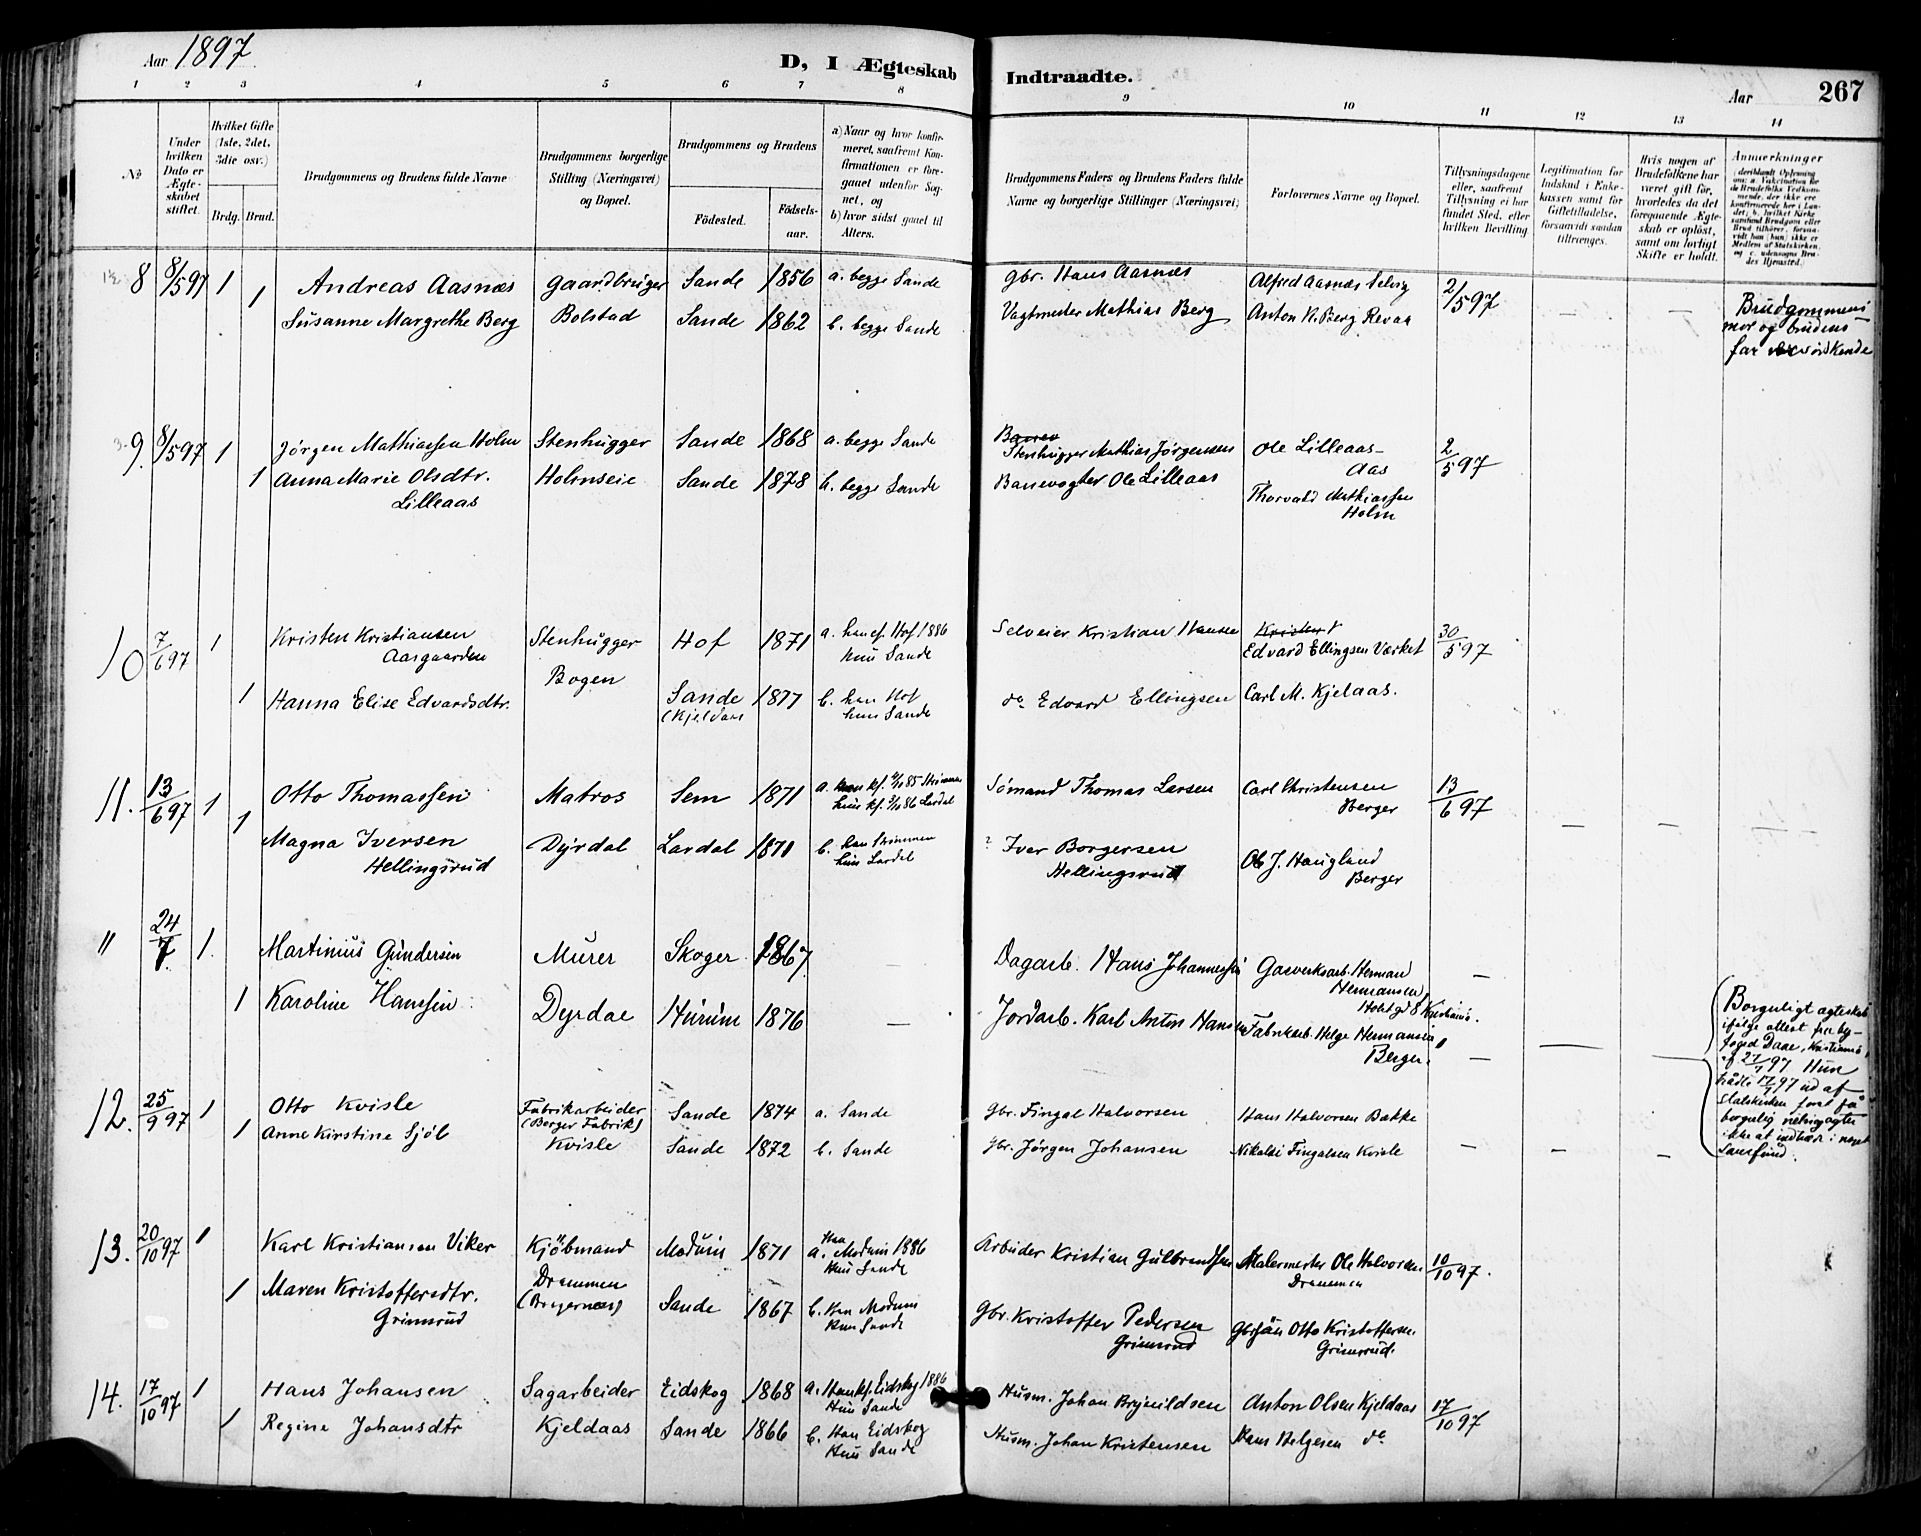 Aar 1897.
D, I Ægteskab Indtraadte.
Aar 267
1 2 3 4 5 6 7 8 9 10 11 12 13 14
No
Under hvilken Dato er Ægteskabet stiftet.
Hvilket Gifte (1ste, 2det, 3die osv.)
Brdg. Brud.
Brudgommens og Brudens fulde Navne
Brudgommens borgerlige Stilling (Næringsvei) og Bopæl.
Brudgommens og Brudens
Födested.
Födselsaar.
a) Naar og hvor konfirmeret, saafremt Konfirmationen er foregaaet udenfor Sognet, og
b) hvor sidst gaaet til Alters.
Brudgommens Faders og Brudens Faders fulde Navne og borgerlige Stillinger (Næringsvei)
Forlovernes Navne og Bopæl.
Tillysningsdagene eller, saafremt Tillysning ei har fundet Sted, efter hvilken Bevilling
Legitimation for Indskud i Enkekassen samt for Giftetilladelse, forsaavidt saadan tiltrænges.
Hvis nogen af Brudefolkene har været gift før, hvorledes da det foregaaende Ægteskab er opløst, samt om lovligt Skifte er holdt.
Anmerkninger
8 8/5 97 1 Andreas Aasnæs Gaardbruger Sande 1856 a. begge Sande Gbr. Hans Aasnæs Alfred Aasnæs Selvig 2/5 97
1 Susanne Margrethe Berg Bolstad Sande 1862 b. begge Sande Vagtmester Mathias Berg Anton N. Berg Revaa — —
Brudgommens
mor og brudens
far søskende
9. 8/5 97 1 Jørgen Mathiassen Holm Stenhugger Sande 1868 a. begge Sande Stenhugger Mathias Jørgensen Ole Lilleaas Aas 2/5 97
1 Anna Marie Olsdtr. Lilleaas Holmseie Sande 1878 b. begge Sande Banevogter Ole Lilleaas Thorvald Mathiassen Holm
10 7/6 97 1 Kristen Kristiansen Aasgaarden Stenhugger Hof 1871 a. han cf. Hof 1886 hun Sande Selveier Kristian Hansen Edvard Ellingsen Værket 30/5 97
1 Hanna Elise Edvardsdtr. Bogen Sande (Kjeldaas 1877 b. han Hof hun Sande do Edvard Ellingsen Carl M. Kjelaas.
11. 13/6 97 1 Otto Thomassen Matros Sem 1871 a. han kf. 85 Strømmen hun kf. 86 Lardal Sømand Thomas Larsen Carl Christensen Berger 13/6 97
1 Magna Iversen Hellingsrud Dyrdal Lardal 1871 b. han Strømmen hun Lardal ? Iver Borgersen Hellingsrud Ole J. Haugland Berger — — —
" 24/7 1. Martinius Gundersen Murer Skoger 1867 — Dagarb. Hans Johannessen Gasverksarb. Herman Hermansen, Holstgd 8 Kristiania. —
1 Karoline Hanssen Dyrdal Hurum 1876 — Jordarb. Karl Anton Hansen Fabrikarb. Helge Hermansen, Berger. — — —
Borgerligt ægteskab
ifølge attest fra by-
foged Daae, Kristiania,
af 27/7 97 Hun
trådte 17/7 97 ud af
statskirken for at få
borgerlig vielse, agter
ikke at indtræde i noget
Samfund.
12. 25/9 97 1 Otto Kvisle Fabrikarbeider (Berger Fabrik) Sande 1874 a. Sande Gbr. Fingal Halvorsen Hans Halvorsen Bakke
1 Anne Kirstine Sjøl Kvisle Sande 1872 b. Sande Gbr. Jørgen Johansen Nikolai Fingalsen Kvisle — — —
13. 20/10 97 1 Karl Kristiansen Viker Kjøbmand Modum 1871 a. Han Modum 1886 Hun Sande Arbeider Kristian Gulbrandsen Malermester Ole Halvorsen Drammen 10/10 97.
1 Maren Kristoffersdtr. Grimsrud Drammen (Bragernæs) Sande 1867 b. Han Modum Hun Sande Gbr. Kristoffer Pedersen Grimsrud Gbrsøn Otto Kristoffersen Grimsrud.
14. 17/10 97 1 Hans Johansen Sagarbeider Eidskog 1868 a. Han kf. Eidskog 1886 Hun Sande Husm. Johan Brynildsen Anton Olsen Kjeldaas 17/10 97
1 Regine Johansdtr Kjeldaas Sande 1866 b. Han Eidskog Hun Sande Husm. Johan Kristensen Hans Helgesen do